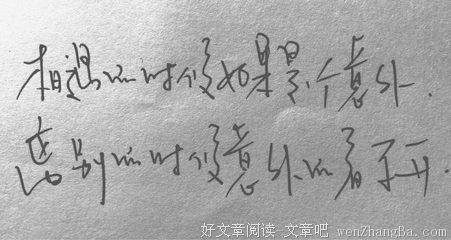 相遇的时候如果是个意外.
离别的时候意外的看不开.
好文章阅读-文章吧 wenZhangBa.com